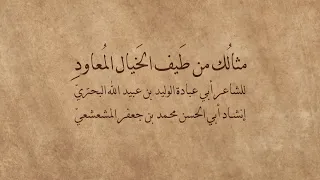 مثالُك من طَيف الخَيال المُعاودِ
للشاعر أبي عبادة الوليد بن عبيد الله البحتريّ
إنشاد أبي الحسن محمد بن جعفر المشعشعيّ